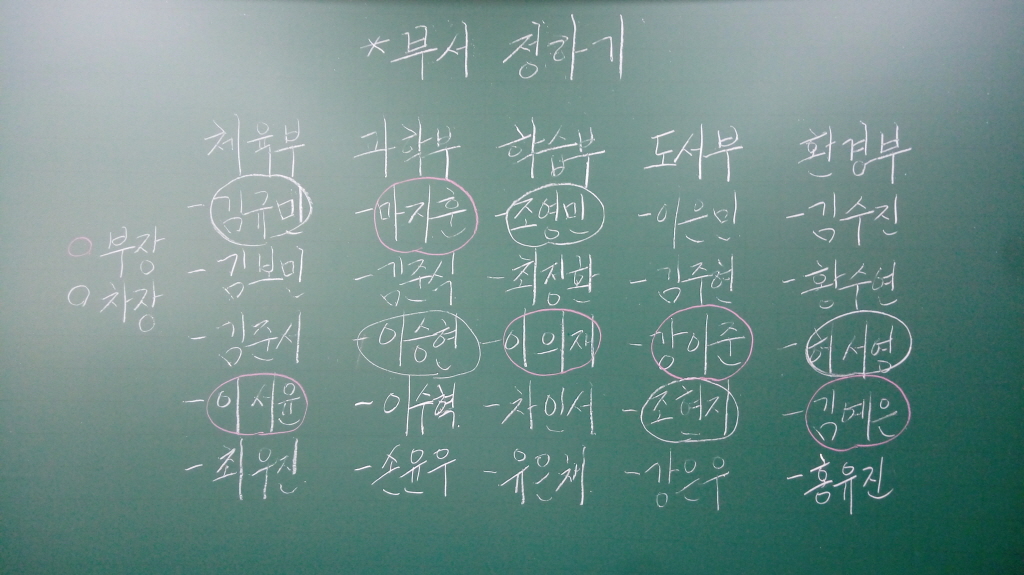 *부서 정하기
체육부 과학부 학습부 도서부 환경부
-김규민 -마지훈 -조영민 -이은민 -김수진
○ 부장
-김보미 -김준식 -최정환 -김주현 -환수연
○ 차장
-김준서 -이승현 -이의재 -강이준 -허서영
-이서윤 -이수혁 -차인서 -조현지 -김예은
-최우진 -손윤우 -유은채 -강은우 -홍유진